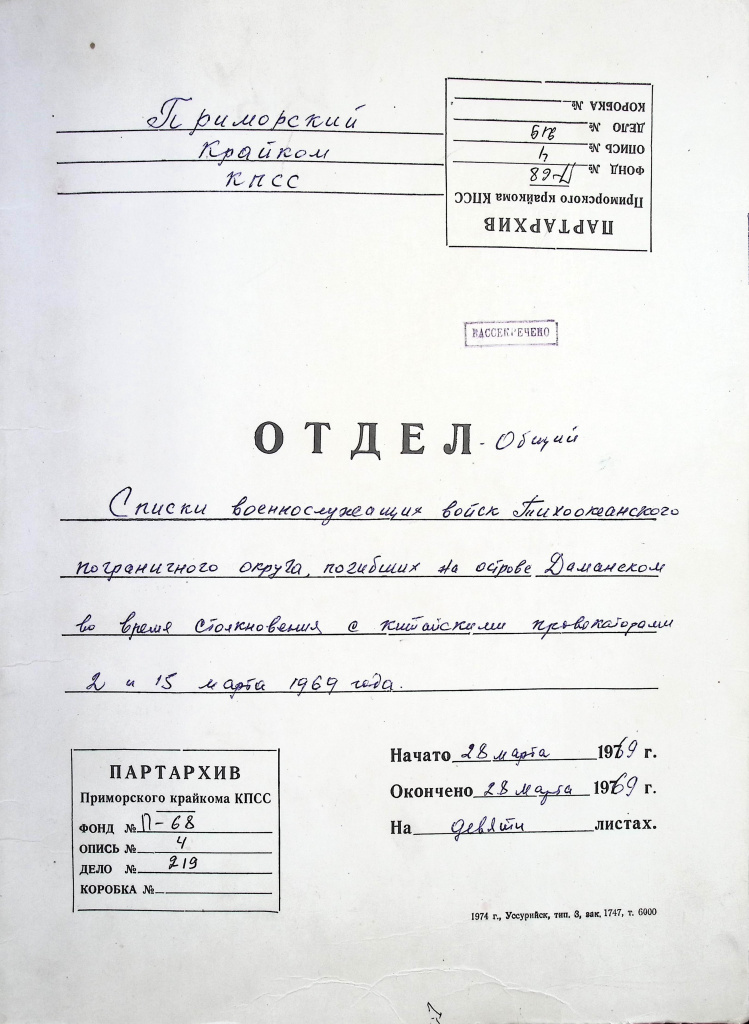 Приморский
Крайком
КПСС
ПАРТАРХИВ
Приморского крайкома КПСС
ФОНД № П-68
ОПИСЬ № 4
ДЕЛО № 219
КОРОБКА №
РАССЕКРЕЧЕНО
ОТДЕЛ - Общий
Списки военнослужащих войск Тихоокеанского
пограничного округа, погибших на острове Даманском
во время столкновения с китайскими провокаторами
2 и 15 марта 1969 года.
Начато 28 марта 1969 г.
Окончено 28 марта 1969 г.
На девяти листах.
ПАРТАРХИВ
Приморского крайкома КПСС
ФОНД № П-68
ОПИСЬ № 4
ДЕЛО № 219
КОРОБКА №
1974 г., Уссурийск, тип. 3, зак. 1747, т. 6000